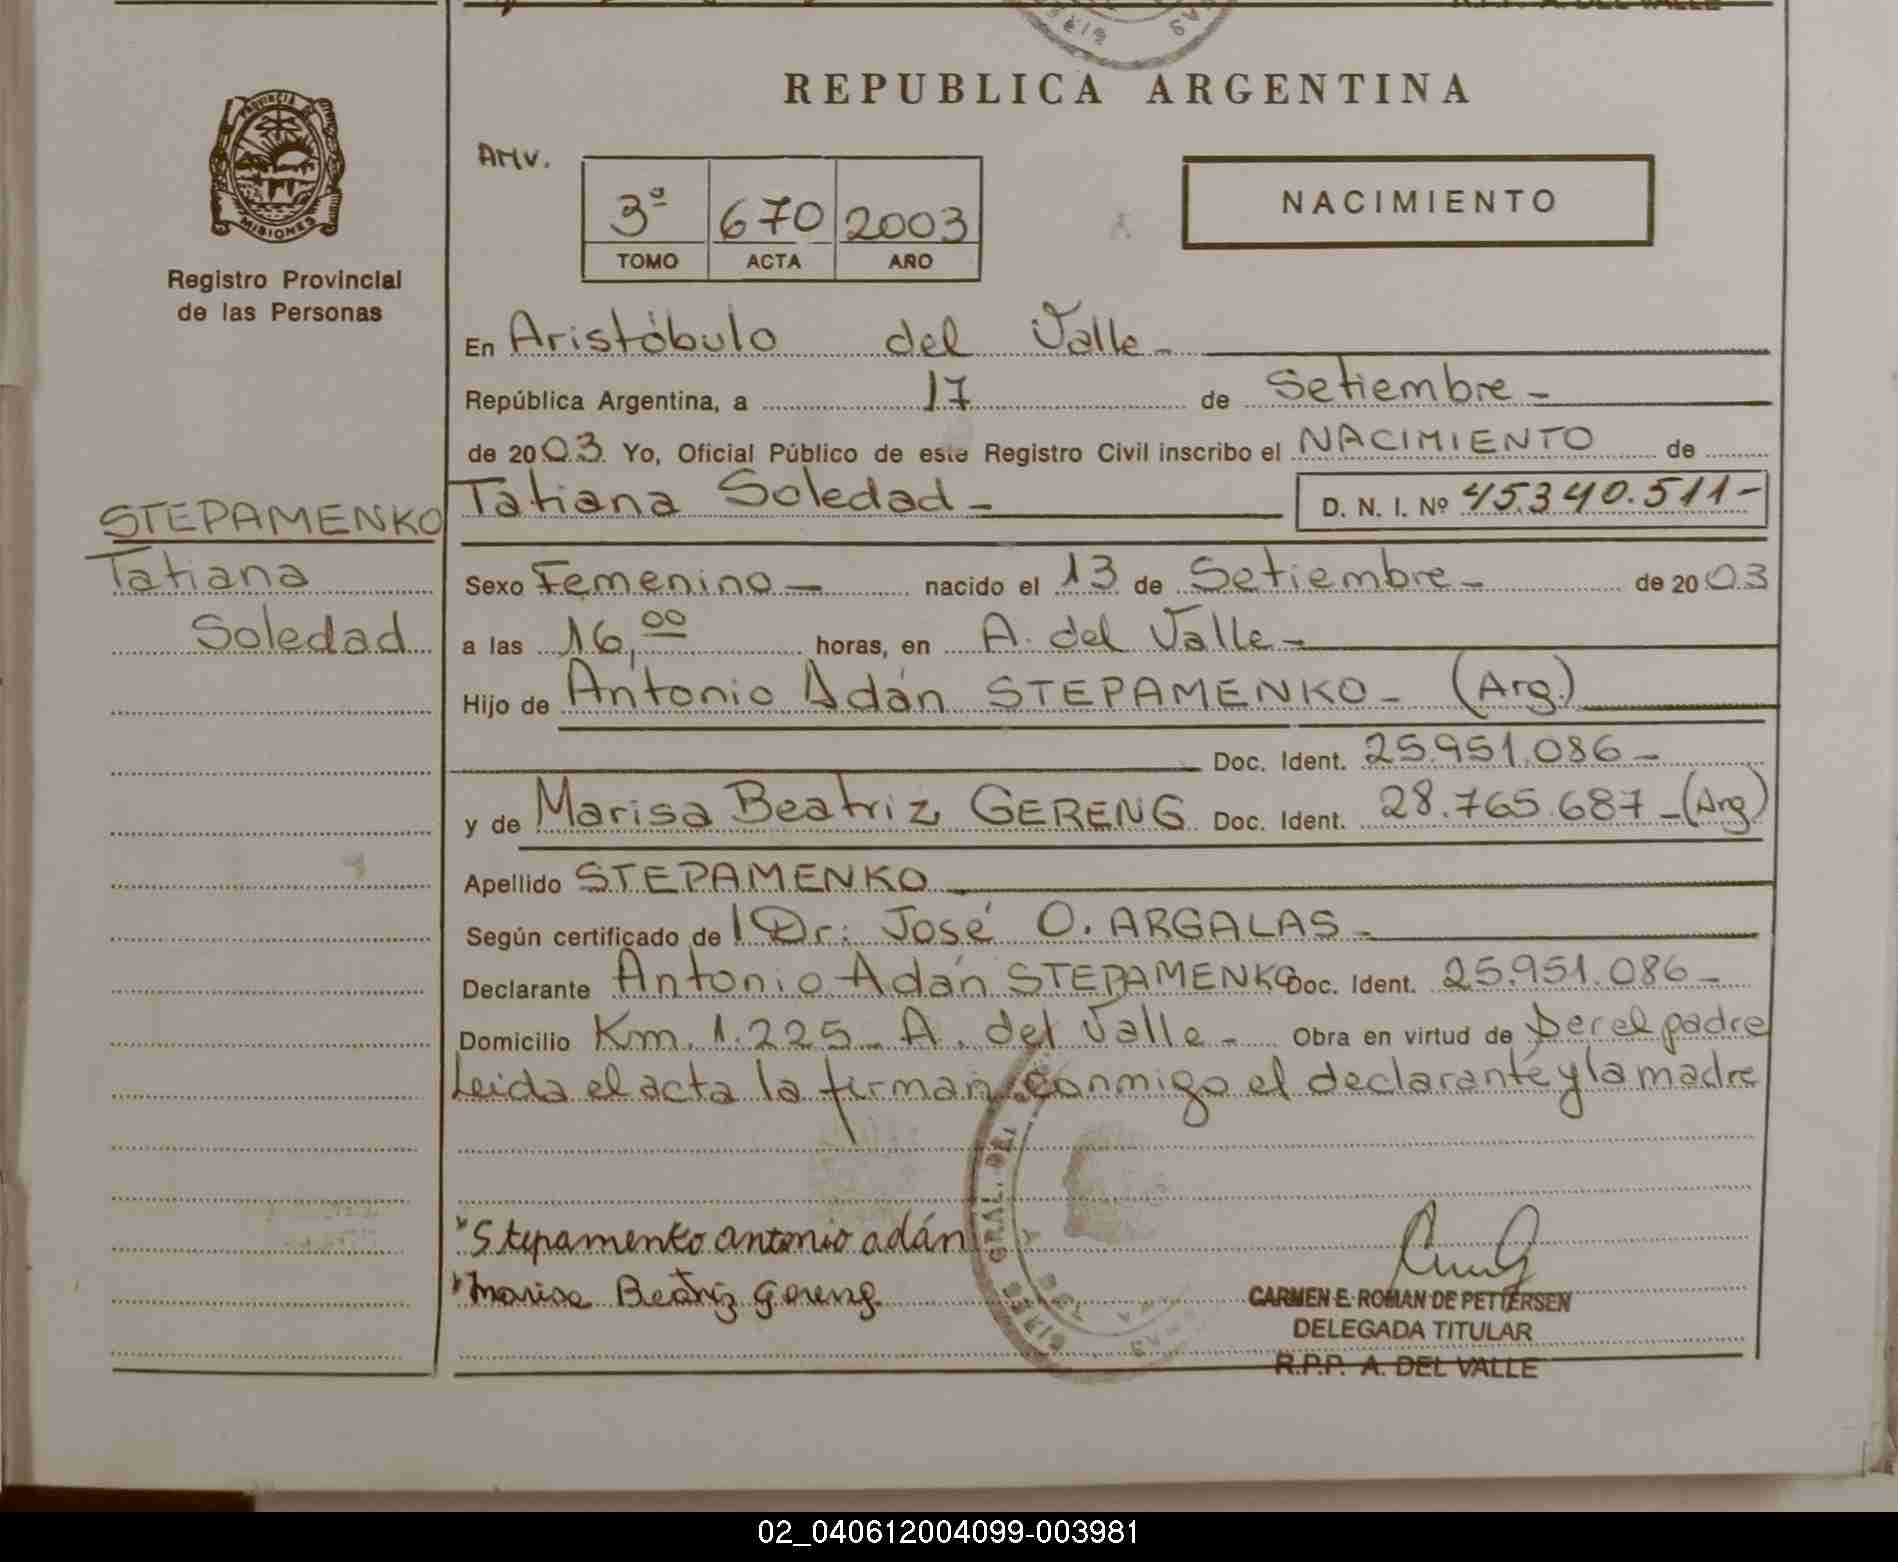 R.P.P. A. DEL VALLE
REPUBLICA ARGENTINA
PROVINCIA DE
MISIONES
Registro Provincial
de las Personas
AMV.
3ª 670 2003
TOMO ACTA AÑO
NACIMIENTO
En Aristóbulo del Valle -
República Argentina, a 17 de Setiembre -
de 2003. Yo, Oficial Público de este Registro Civil inscribo el NACIMIENTO de
STEPAMENKO
Tatiana
Soledad
Tatiana Soledad - D. N. I. Nº 45.340.511-
Sexo Femenino - nacido el 13 de Setiembre - de 2003
a las 16,00 horas, en A. del Valle -
Hijo de Antonio Adán STEPAMENKO - (Arg.)
Doc. Ident. 25.951.086 -
y de Marisa Beatriz GERENG Doc. Ident. 28.765.687 - (Arg)
Apellido STEPAMENKO
Según certificado de Dr: José O. ARGALAS -
Declarante Antonio Adán STEPAMENKO Doc. Ident. 25.951.086 -
Domicilio Km. 1.225 - A. del Valle - Obra en virtud de Ser el padre
Leida el acta la firman conmigo el declarante y la madre
Stepamenko antonio adán
marisa Beatriz Gereng
CARMEN E. ROMAN DE PETTERSEN
DELEGADA TITULAR
R.P.P. A. DEL VALLE
02_040612004099-003981